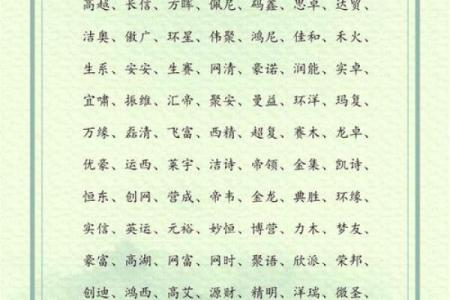 高越、长信、万晖、佩尼、码鑫、思卓、达贸、
洁奥、傲广、环星、伟聚、鸿尼、佳和、禾火、
生系、安安、生赛、网清、豪诺、润能、实卓、
宜啸、振维、汇帝、聚安、曼益、环洋、玛复、
万缘、磊清、飞富、西精、超复、赛木、龙卓、
优豪、运西、莱宇、洁诗、帝领、金集、凯诗、
恒东、创网、营成、帝韦、金龙、典胜、环缘、
实信、英运、元裕、妙恒、博营、力木、梦友、
豪富、高湖、网富、网时、聚语、欣派、荣邦、
创迪、鸿西、高艾、源财、精明、洋瑞、微圣、